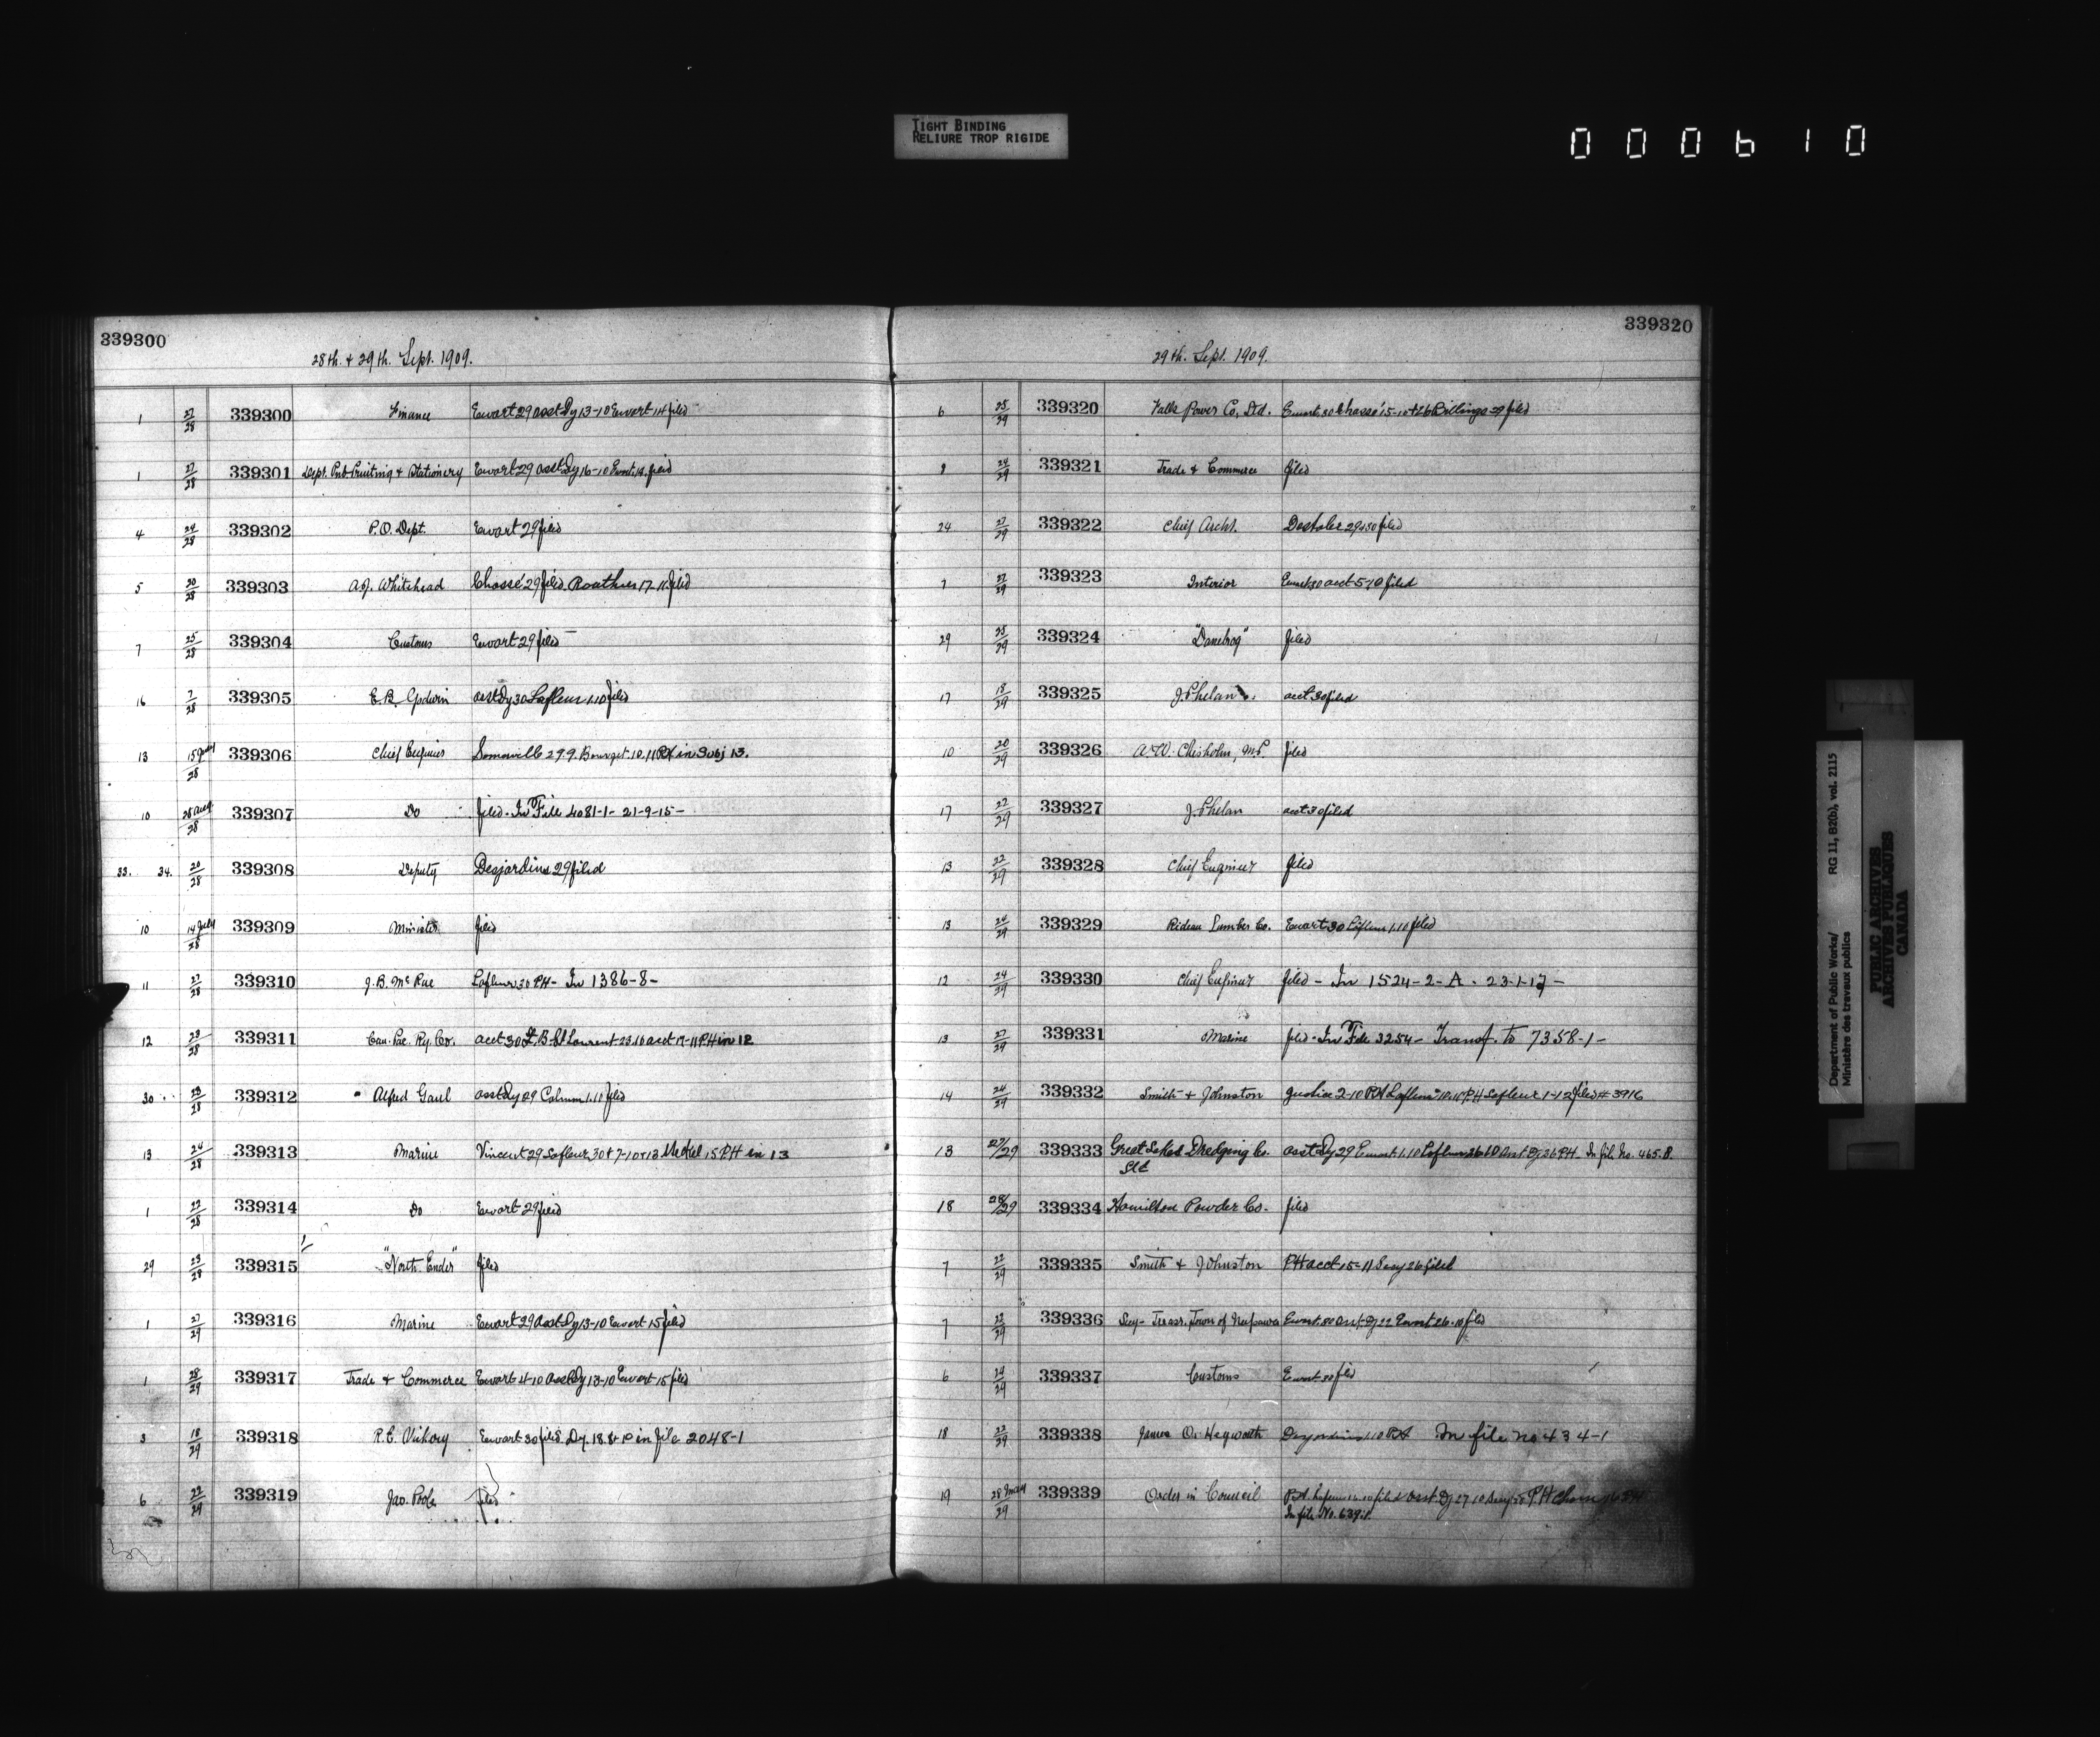 TIGHT BINDING
RELIURE TROP RIGIDE
000610
339300
28th. & 29th. Sept. 1909.
1 27/28 339300 Finance Ewart 29 asst Dy 13-10 Ewart 14 filed
1 27/28 339301 Dept. Pub. Printing & Stationery Ewart 29 asst Dy 16-10 Ewart 18 filed
4 24/28 339302 P.O. Dept. Ewart 29 filed
5 20/28 339303 A.J. Whitehead Chassé 29 filed Routhier 17-11 filed
7 25/28 339304 Customs Ewart 29 filed
16 7/28 339305 E.B. Godwin asst Dy 30 Lafleur 1.10 filed
13 15 July/28 339306 Chief Engineer Somerville 29.9. Bourget. 10.11 PH in Subj 13.
10 28 Aug/28 339307 Do filed. In File 4081-1- 21-9-15-
33. 34. 20/28 339308 Deputy Desjardins 29 filed
10 14 July/28 339309 Minister filed
11 27/28 339310 J.B. McRae Lafleur 30 PH- In 1386-8-
12 23/28 339311 Can. Pac. Ry. Co. acct 30 St. Laurent 23.10 acct 19-11 PH in 12
30 23/28 339312 Alfred Gaul asst Dy 29 1.10 filed
13 24/28 339313 Marine Vincent 29 Lafleur 30 & 7-10 & 13 15 PH in 13
1 22/28 339314 Do Ewart 29 filed
29 23/28 339315 "North Ender" filed
1 27/29 339316 Marine Ewart 29 Asst Dy 13-10 Ewart 15 filed
1 28/29 339317 Trade & Commerce Ewart 4-10 asst Dy 13-10 Ewart 15 filed
3 18/29 339318 R.E. Vickory Ewart 30 filed. Dy. 18.8 in file 2048-1
6 22/29 339319 Jas. Poole filed
339320
29th. Sept. 1909.
6 25/29 339320 Falls Power Co, Ltd. Ewart. 30 Chassé 15-10 & 26 Billings 29 filed
8 24/29 339321 Trade & Commerce filed
24 27/29 339322 Chief Archt. 29 & 30 filed
7 27/29 339323 Interior Ewart 30 acct 5-10 filed
29 25/29 339324 "Danebrog" filed
17 18/29 339325 J. Phelan acct 30 filed
10 20/29 339326 A.W. Chisholm, M.P. filed
17 22/29 339327 J. Phelan acct 30 filed
13 22/29 339328 Chief Engineer filed
13 24/29 339329 Rideau Lumber Co. Ewart 30 Lafleur 1.10 filed
12 24/29 339330 Chief Engineer filed - In 1524-2-A. 23-1-17-
13 27/29 339331 Marine filed. In File 3254- Transf. to 7358-1-
14 24/29 339332 Smith & Johnston Justice 2-10 PH Lafleur PH Lafleur 1-12 filed # 3916
13 27/29 339333 Great Lakes Dredging Co. Asst Dy 29 Ewart 1.10 Lafleur 26.10 Asst Dy 26 PH- In file No. 465-B.
Ltd
18 28/29 339334 Hamilton Powder Co. filed
7 22/29 339335 Smith & Johnston PH acct 15-11 Secy 26 filed
7 22/29 339336 Secy- Treasr. Town of Neepawa Ewart 30 Asst Dy 22 Ewart 26.10 filed
6 24/29 339337 Customs Ewart 30 filed
18 22/29 339338 James O. Hepworth Desjardins 1.10 PH In file no 434-1
19 28 May/29 339339 Order in Council PH. 16.10 filed Asst Dy 27.10 Secy 28 PH
In file No. 639-1.
Department of Public Works/ RG 11, B2(b), vol. 2115
Ministère des travaux publics
PUBLIC ARCHIVES
ARCHIVES PUBLIQUES
CANADA